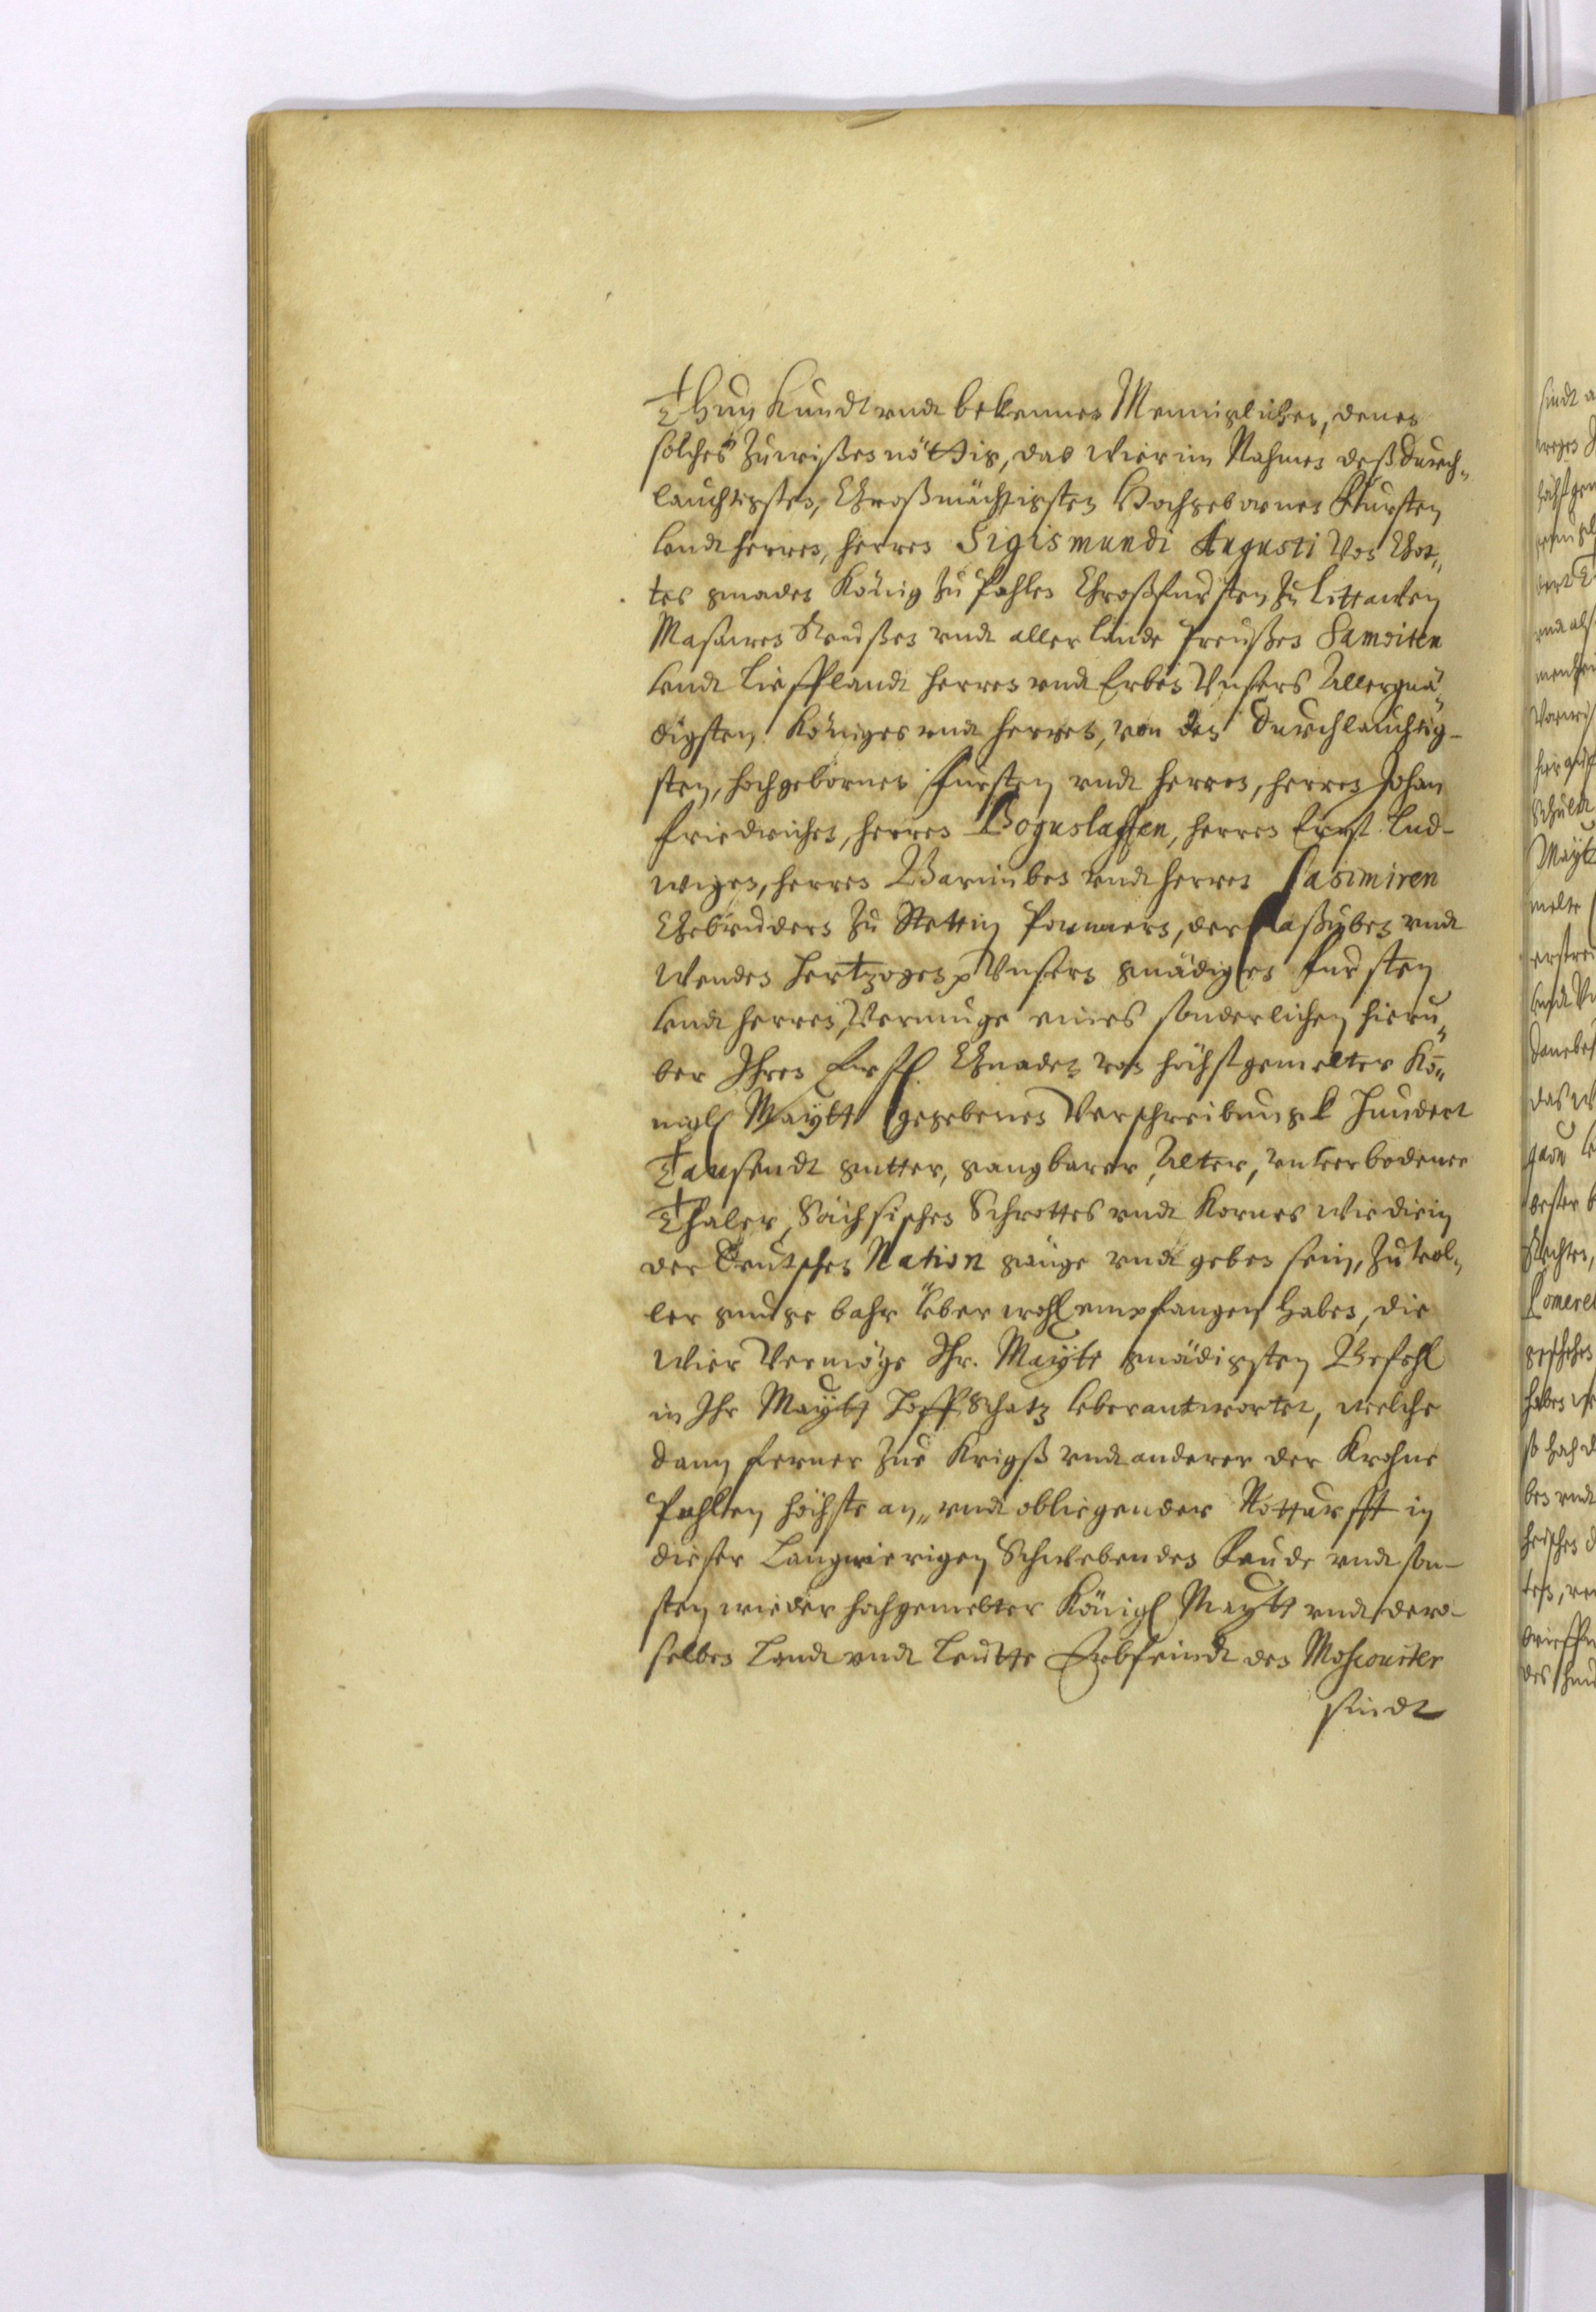 Thun Kundt vndt bekennen Menniglichen, denen
solches Zuwißen nöttig, das Wier im Nahmen deß durch„
lauchtigsten, Großmächtigsten Hochgebornen Fürsten
vndt Herren, Herren Sigismundi Augusti Von Got„
tes gnaden König Zu Pohlen Großfürsten Zu Littawen
Masuren Reußen vndt aller lande Preußen Samoiten
vndt Liefflandt Herren vndt Erben Vnsers Allergnä„
digsten Königes vndt Herren, von den Durchlauchtig-
sten, hochgebornen Fürsten vndt Herren, Herren Johan
Friedrichen, Herren Boguslaffen, Herren Ernst Lud-
wigen, Herren Barnimben vndt Herren Casimiren
Gebrüdern Zu Stettin Pommern, der Caßuben vndt
Wenden Hertzogen Vnsern gnädigen Fürsten
vndt Herren, Vermuge eines sonderlichen hierü„
ber Ihren Fürstl. Gnaden von höchstgemelter Kö„
nigl Maytt gegebenen Verschreibung Hundert
Tausendt gutter, gangbarer, Alter, vnverbodener
Thaler, Sächsischen Schrottes vndt Kornes Wie die in
der Deutschen Nation gänge vndt geben sein, Zu vol„
ler gnüge bahr über wohl empfangen haben, die
Wier Vermöge Ihr. Maytt gnädigsten Befehl
in Ihr Maytt Hoff Schatz vberantwortet, welche
dann ferner Zue Krigß vndt anderer der Krohne
Pohlen höchste an„ vndt obliegender Notturfft in
dieser Langwierigen Schwebenden vndt son-
sten wieder hochgemelter Königl Maytt vndt dero-
selben Landt vndt Leutte Erbfeindt den Moscowiter
sindt